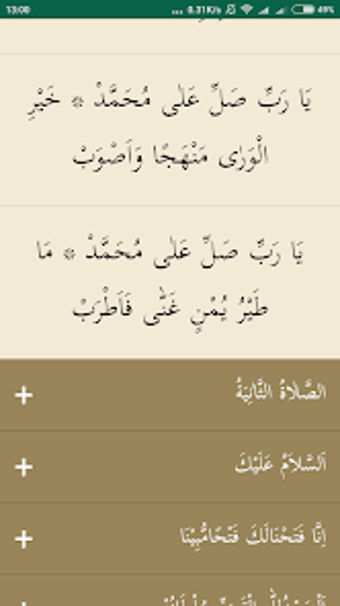 13:00 ... 0.31K/s 49%
يَا رَبِّ صَلِّ عَلٰى مُحَمَّدْ ۞ خَيْرِ
الْوَرٰى مَنْهَجًا وَاَصْوَبْ
يَا رَبِّ صَلِّ عَلٰى مُحَمَّدْ ۞ مَا
طَيْرُ يُمْنٍ غَنّٰى فَاَطْرَبْ
الصَّلَاةُ الثَّانِيَةُ
+
اَلسَّلَامُ عَلَيْكَ
+
اِنَّا فَتَحْنَالَكَ فَتْحًامُّبِيْنَا
+